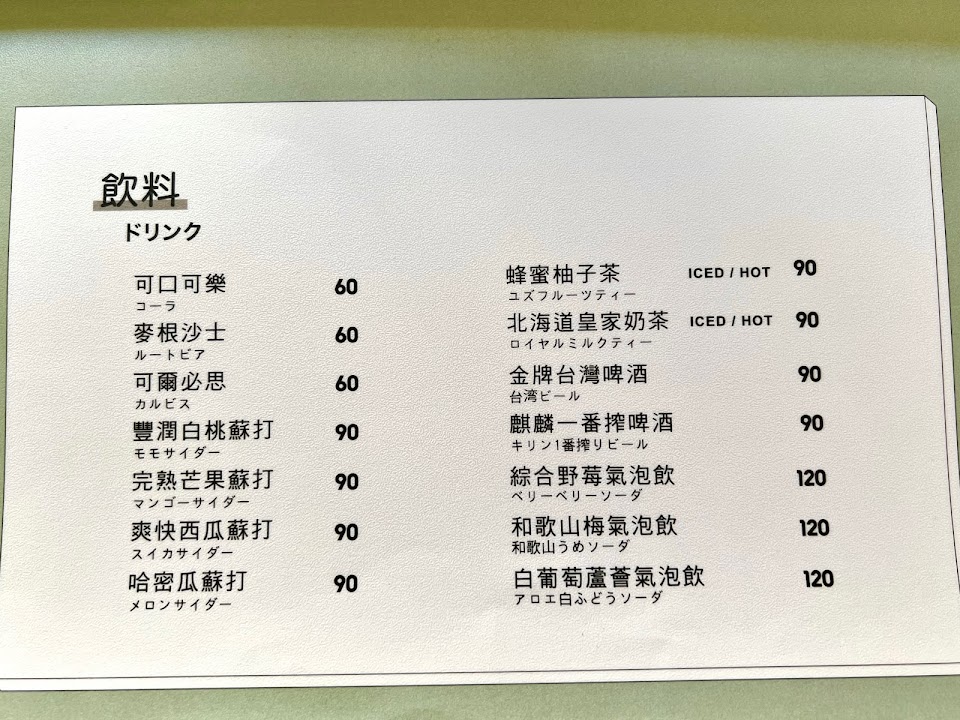 飲料
ドリンク
可口可樂 60
コーラ
麥根沙士 60
ルートビア
可爾必思 60
カルピス
豐潤白桃蘇打 90
モモサイダー
完熟芒果蘇打 90
マンゴーサイダー
爽快西瓜蘇打 90
スイカサイダー
哈密瓜蘇打 90
メロンサイダー
蜂蜜柚子茶 ICED / HOT 90
ユズフルーツティー
北海道皇家奶茶 ICED / HOT 90
ロイヤルミルクティー
金牌台灣啤酒 90
台湾ビール
麒麟一番搾啤酒 90
キリン1番搾りビール
綜合野莓氣泡飲 120
ベリーベリーソーダ
和歌山梅氣泡飲 120
和歌山うめソーダ
白葡萄蘆薈氣泡飲 120
アロエ白ぶどうソーダ